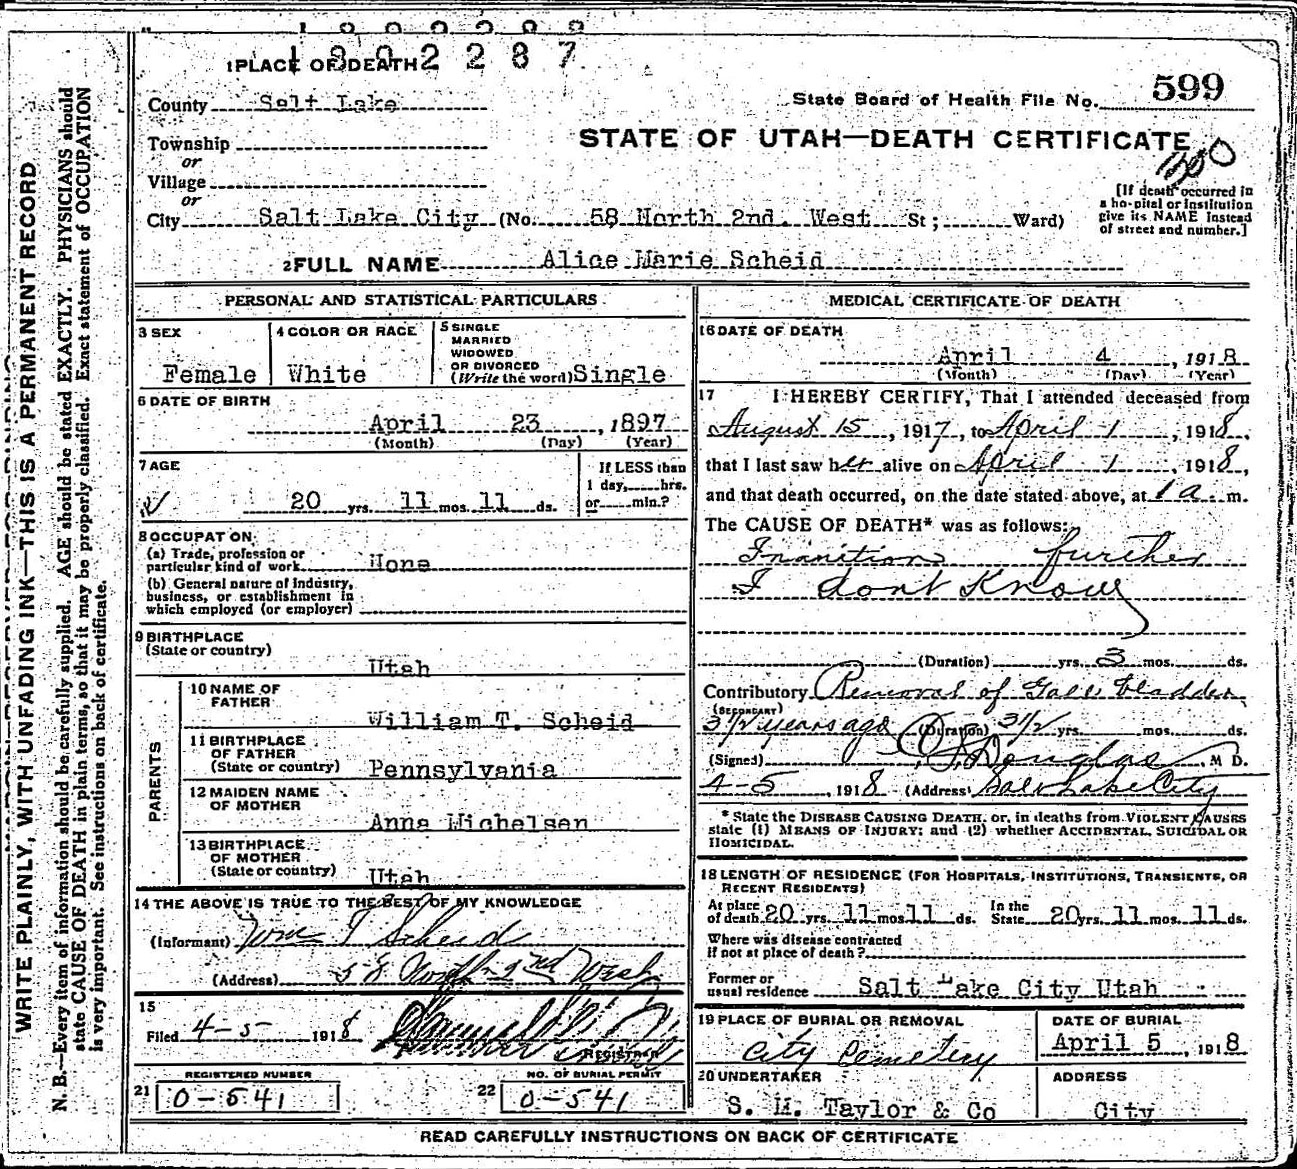 1802287
1 PLACE OF DEATH
State Board of Health File No. 599
County Salt Lake
STATE OF UTAH—DEATH CERTIFICATE
Township
or
Village
or
City Salt Lake City (No. 58 North 2nd. West St; Ward)
[If death occurred in
a hospital or institution
give its NAME instead
of street and number.]
2 FULL NAME Alice Marie Scheid
PERSONAL AND STATISTICAL PARTICULARS
3 SEX
Female
4 COLOR OR RACE
White
5 SINGLE
MARRIED
WIDOWED
OR DIVORCED
(Write the word) Single
6 DATE OF BIRTH
April 23, 1897
(Month) (Day) (Year)
7 AGE
20 yrs. 11 mos. 11 ds.
If LESS than
1 day, hrs.
or min.?
8 OCCUPATION
(a) Trade, profession or
particular kind of work None
(b) General nature of Industry,
business, or establishment in
which employed (or employer)
9 BIRTHPLACE
(State or country)
Utah
PARENTS
10 NAME OF
FATHER
William T. Scheid
11 BIRTHPLACE
OF FATHER
(State or country) Pennsylvania
12 MAIDEN NAME
OF MOTHER
Anna Michelsen
13 BIRTHPLACE
OF MOTHER
(State or country) Utah
14 THE ABOVE IS TRUE TO THE BEST OF MY KNOWLEDGE
(Informant) Wm T Scheid
(Address) 58 North 2nd West
15
Filed 4-5 1918
REGISTRAR
REGISTERED NUMBER
21 0-541
NO. OF BURIAL PERMIT
22 0-541
MEDICAL CERTIFICATE OF DEATH
16 DATE OF DEATH
April 4, 1918
(Month) (Day) (Year)
17 I HEREBY CERTIFY, That I attended deceased from
August 15, 1917, to April 1, 1918,
that I last saw her alive on April 1, 1918,
and that death occurred, on the date stated above, at 1 a. m.
The CAUSE OF DEATH* was as follows:
Inanition further
I dont Know
(Duration) yrs. 3 mos. ds.
Contributory Removal of Gall bladder
(SECONDARY)
3 1/2 years ago (Duration) 3 1/2 yrs. mos. ds.
(Signed) Douglas, M D.
4-5, 1918 (Address) Salt Lake City
* State the DISEASE CAUSING DEATH, or, in deaths from VIOLENT CAUSES
state (1) MEANS OF INJURY; and (2) whether ACCIDENTAL, SUICIDAL OR
HOMICIDAL.
18 LENGTH OF RESIDENCE (FOR HOSPITALS, INSTITUTIONS, TRANSIENTS, OR
RECENT RESIDENTS)
At place
of death 20 yrs. 11 mos. 11 ds.
In the
State 20 yrs. 11 mos. 11 ds.
Where was disease contracted
if not at place of death?
Former or
usual residence Salt Lake City Utah
19 PLACE OF BURIAL OR REMOVAL
City Cemetery
DATE OF BURIAL
April 5, 1918
20 UNDERTAKER
S. M. Taylor & Co
ADDRESS
City
READ CAREFULLY INSTRUCTIONS ON BACK OF CERTIFICATE
WRITE PLAINLY, WITH UNFADING INK—THIS IS A PERMANENT RECORD
N. B.—Every item of information should be carefully supplied. AGE should be stated EXACTLY. PHYSICIANS should
state CAUSE OF DEATH in plain terms, so that it may be properly classified. Exact statement of OCCUPATION
is very important. See instructions on back of certificate.